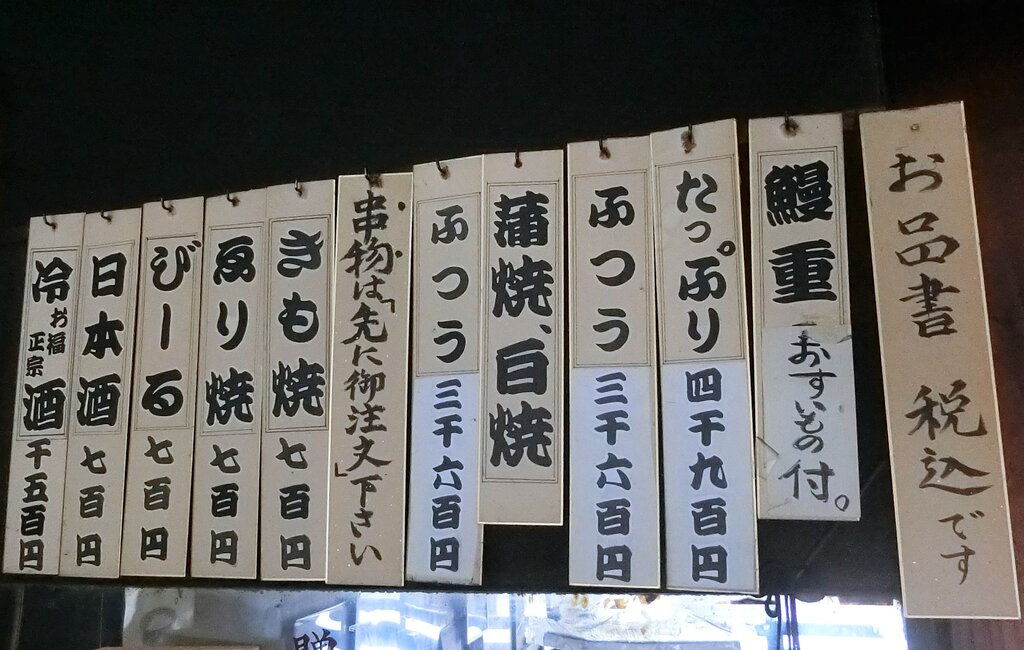 お品書 税込です
鰻重 おすいもの付。
たっぷり 四千九百円
ふつう 三千六百円
蒲焼、白焼
ふつう 三千六百円
串物は「先に御注文」下さい
きも焼 七百円
ゑり焼 七百円
びーる 七百円
日本酒 七百円
冷 お福正宗 酒 千五百円
贈